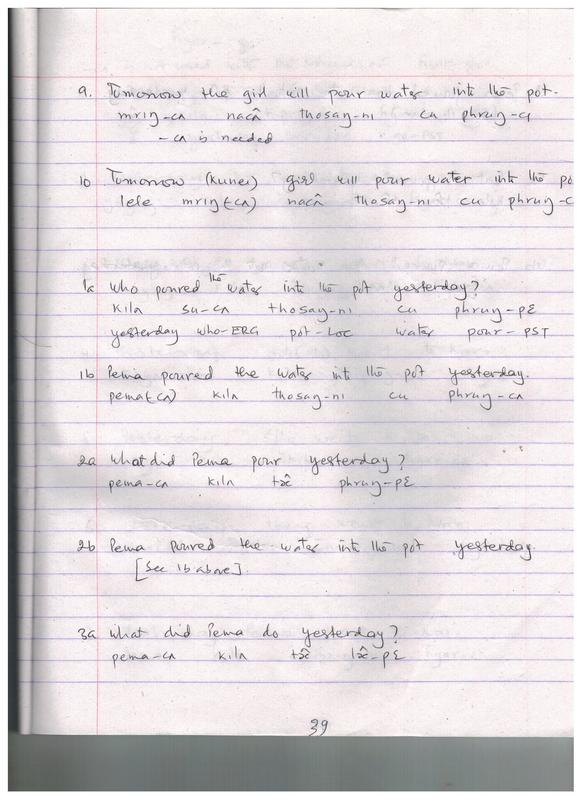 9. Tomorrow the girl will pour water into the pot.
mrıŋ-cʌ nacâ thosaŋ-ni cu phruŋ-c
-cʌ is needed
10 Tomorrow (kunei) girl will pour water into the po
lele mrıŋ(-cʌ) nacâ thosaŋ-ni cu phruŋ-c
1a Who poured the water into the pot yesterday?
kilʌ su-cʌ thosaŋ-ni cu phruŋ-pɛ
yesterday who-ERG pot-LOC water pour-PST
1b Pema poured the water into the pot yesterday.
pema(-cʌ) kilʌ thosaŋ-ni cu phruŋ-cʌ
2a What did Pema pour yesterday?
pema-cʌ kilʌ phruŋ-pɛ
2b Pema poured the water into the pot yesterday.
[See 1b above].
3a What did Pema do yesterday?
pema-cʌ kilʌ
39